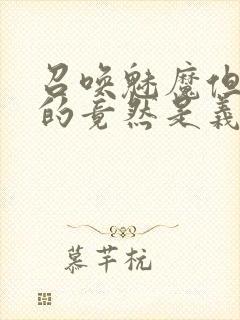 召唤魅魔但
的竟然是义
慕芊杭